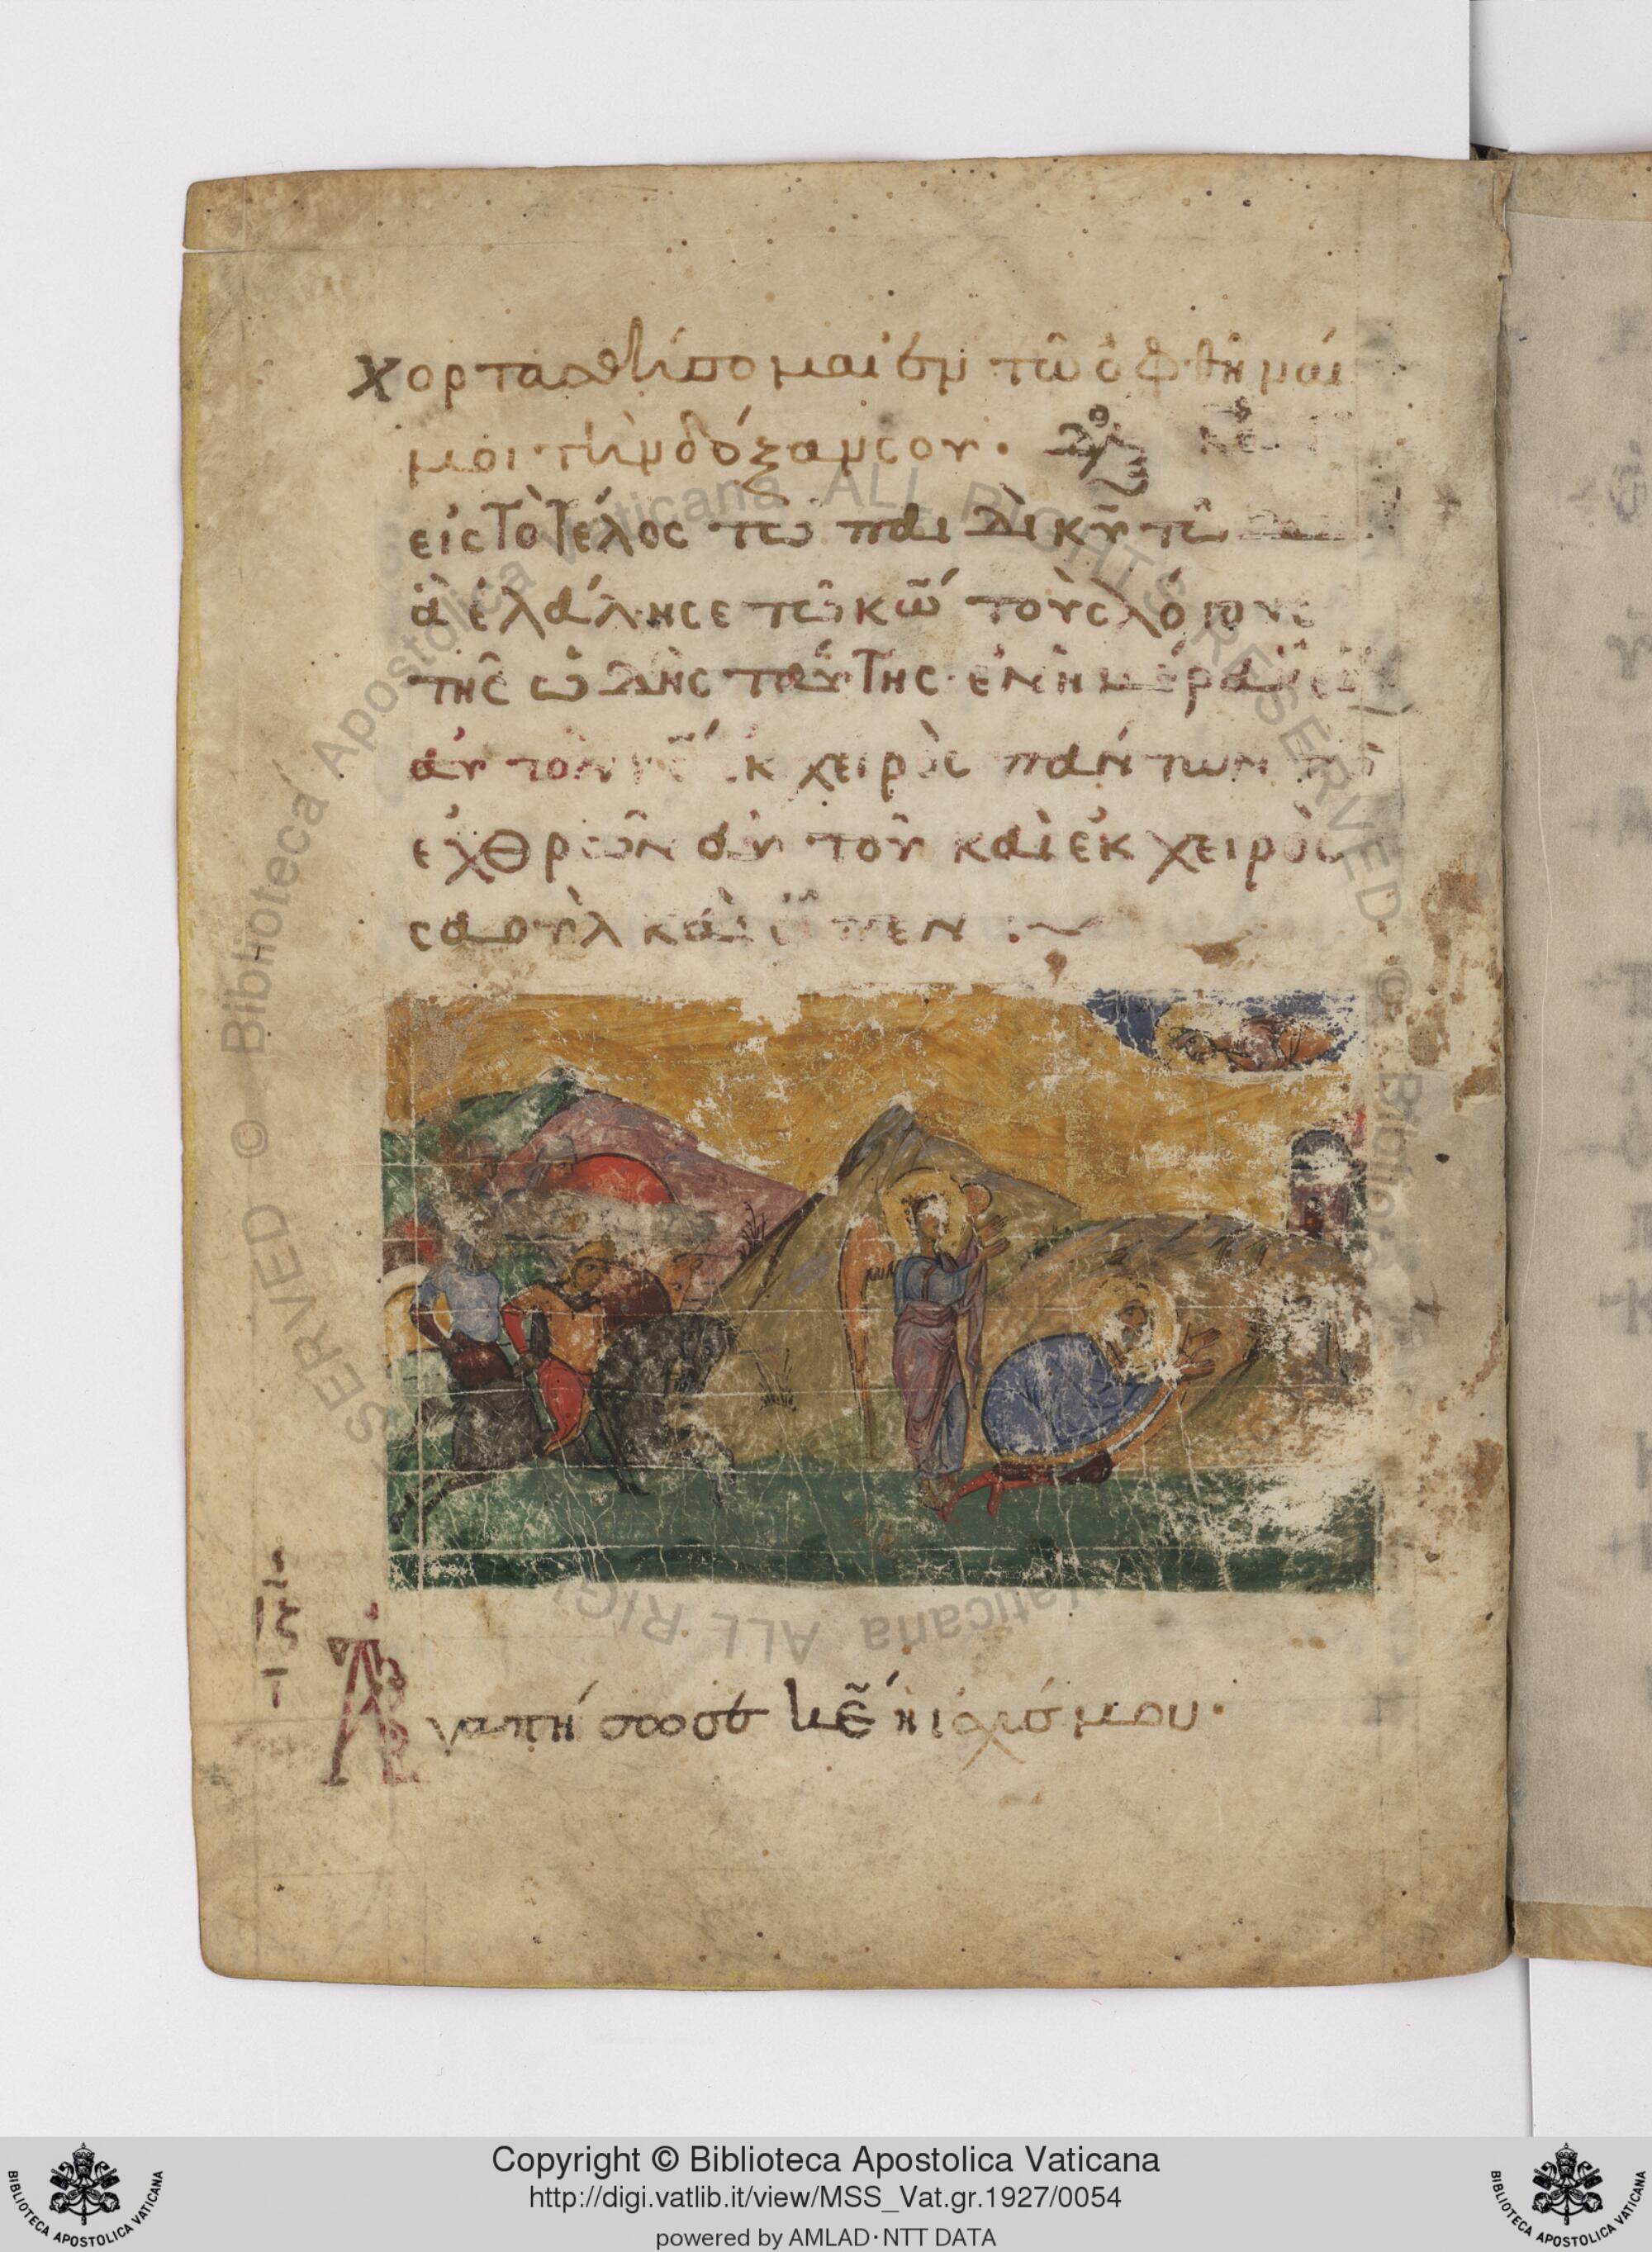 χορτασθήσομαι ἐν τῶ ὀφθῆναί
μοι τὴν δόξαν σου·
εἰς τὸ τέλος τω παιδὶ κῦ τῶ
ἃ ἐλάλησε τῶ κῶ τοὺς λόγους
τῆς ὠδῆς ταύτης· ἐν ἡμέρα
αὐτὸν κς ἐκ χειρὸς πάντων
ἐχθρῶν αὐτοῦ καὶ ἐκ χειρὸς
σαοὺλ καὶ εἶπεν :~
ιζ
Ἀγαπήσω σε κε ἡ ἰσχύς μου·
© Biblioteca Apostolica Vaticana ALL RIGHTS RESERVED © Biblioteca Apostolica Vaticana ALL RIGHTS RESERVED
Copyright © Biblioteca Apostolica Vaticana
http://digi.vatlib.it/view/MSS_Vat.gr.1927/0054
powered by AMLAD·NTT DATA
BIBLIOTECA APOSTOLICA VATICANA
BIBLIOTECA APOSTOLICA VATICANA